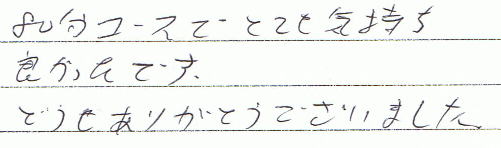 80分コースでとても気持ち
良かったです。
どうもありがとうございました